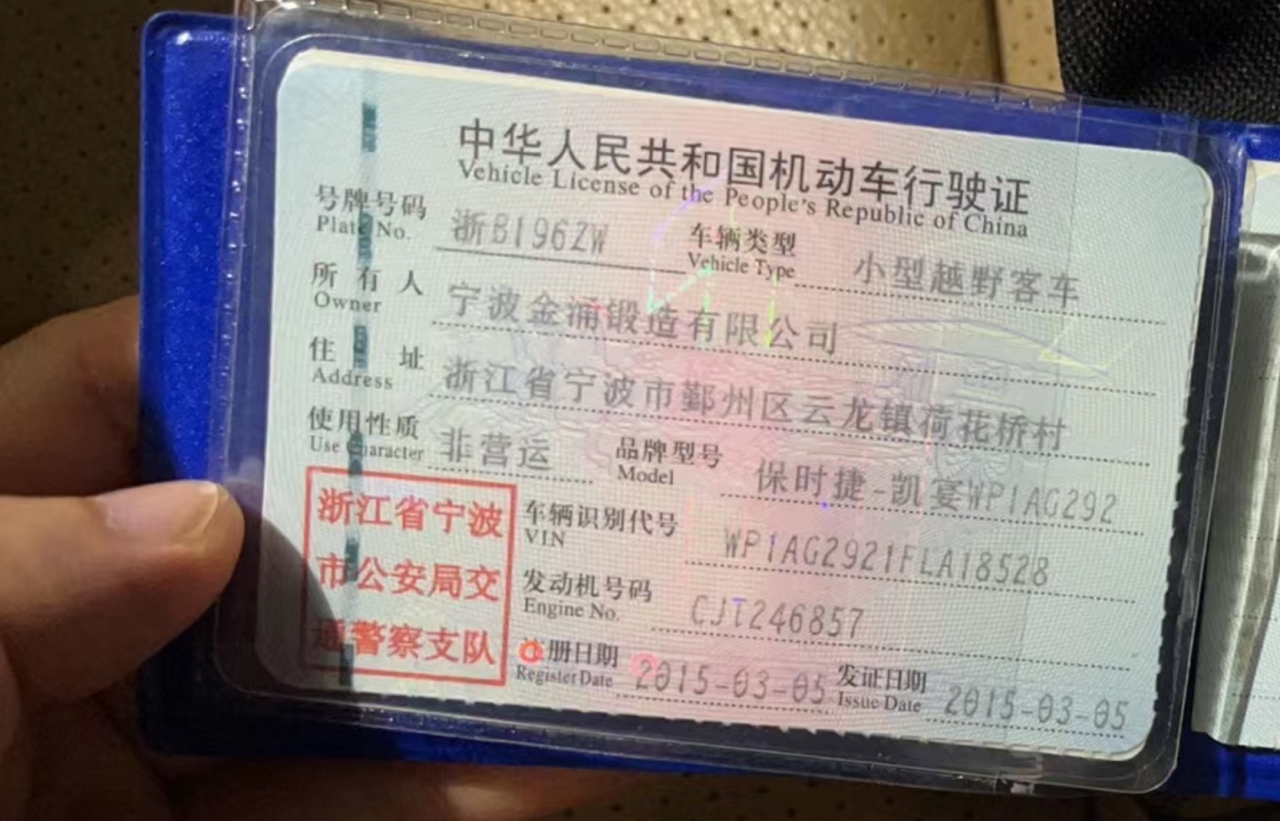 中华人民共和国机动车行驶证
Vehicle License of the People's Republic of China
号牌号码 浙B196ZW 车辆类型 小型越野客车
Plate No. Vehicle Type
所有人 宁波金涌锻造有限公司
Owner
住址 浙江省宁波市鄞州区云龙镇荷花桥村
Address
使用性质 非营运 品牌型号 保时捷-凯宴WP1AG292
Use Character Model
浙江省宁波
市公安局交
通警察支队
车辆识别代号 WP1AG2921FLA18528
VIN
发动机号码 CJT246857
Engine No.
册日期 2015-03-05 发证日期 2015-03-05
Register Date Issue Date